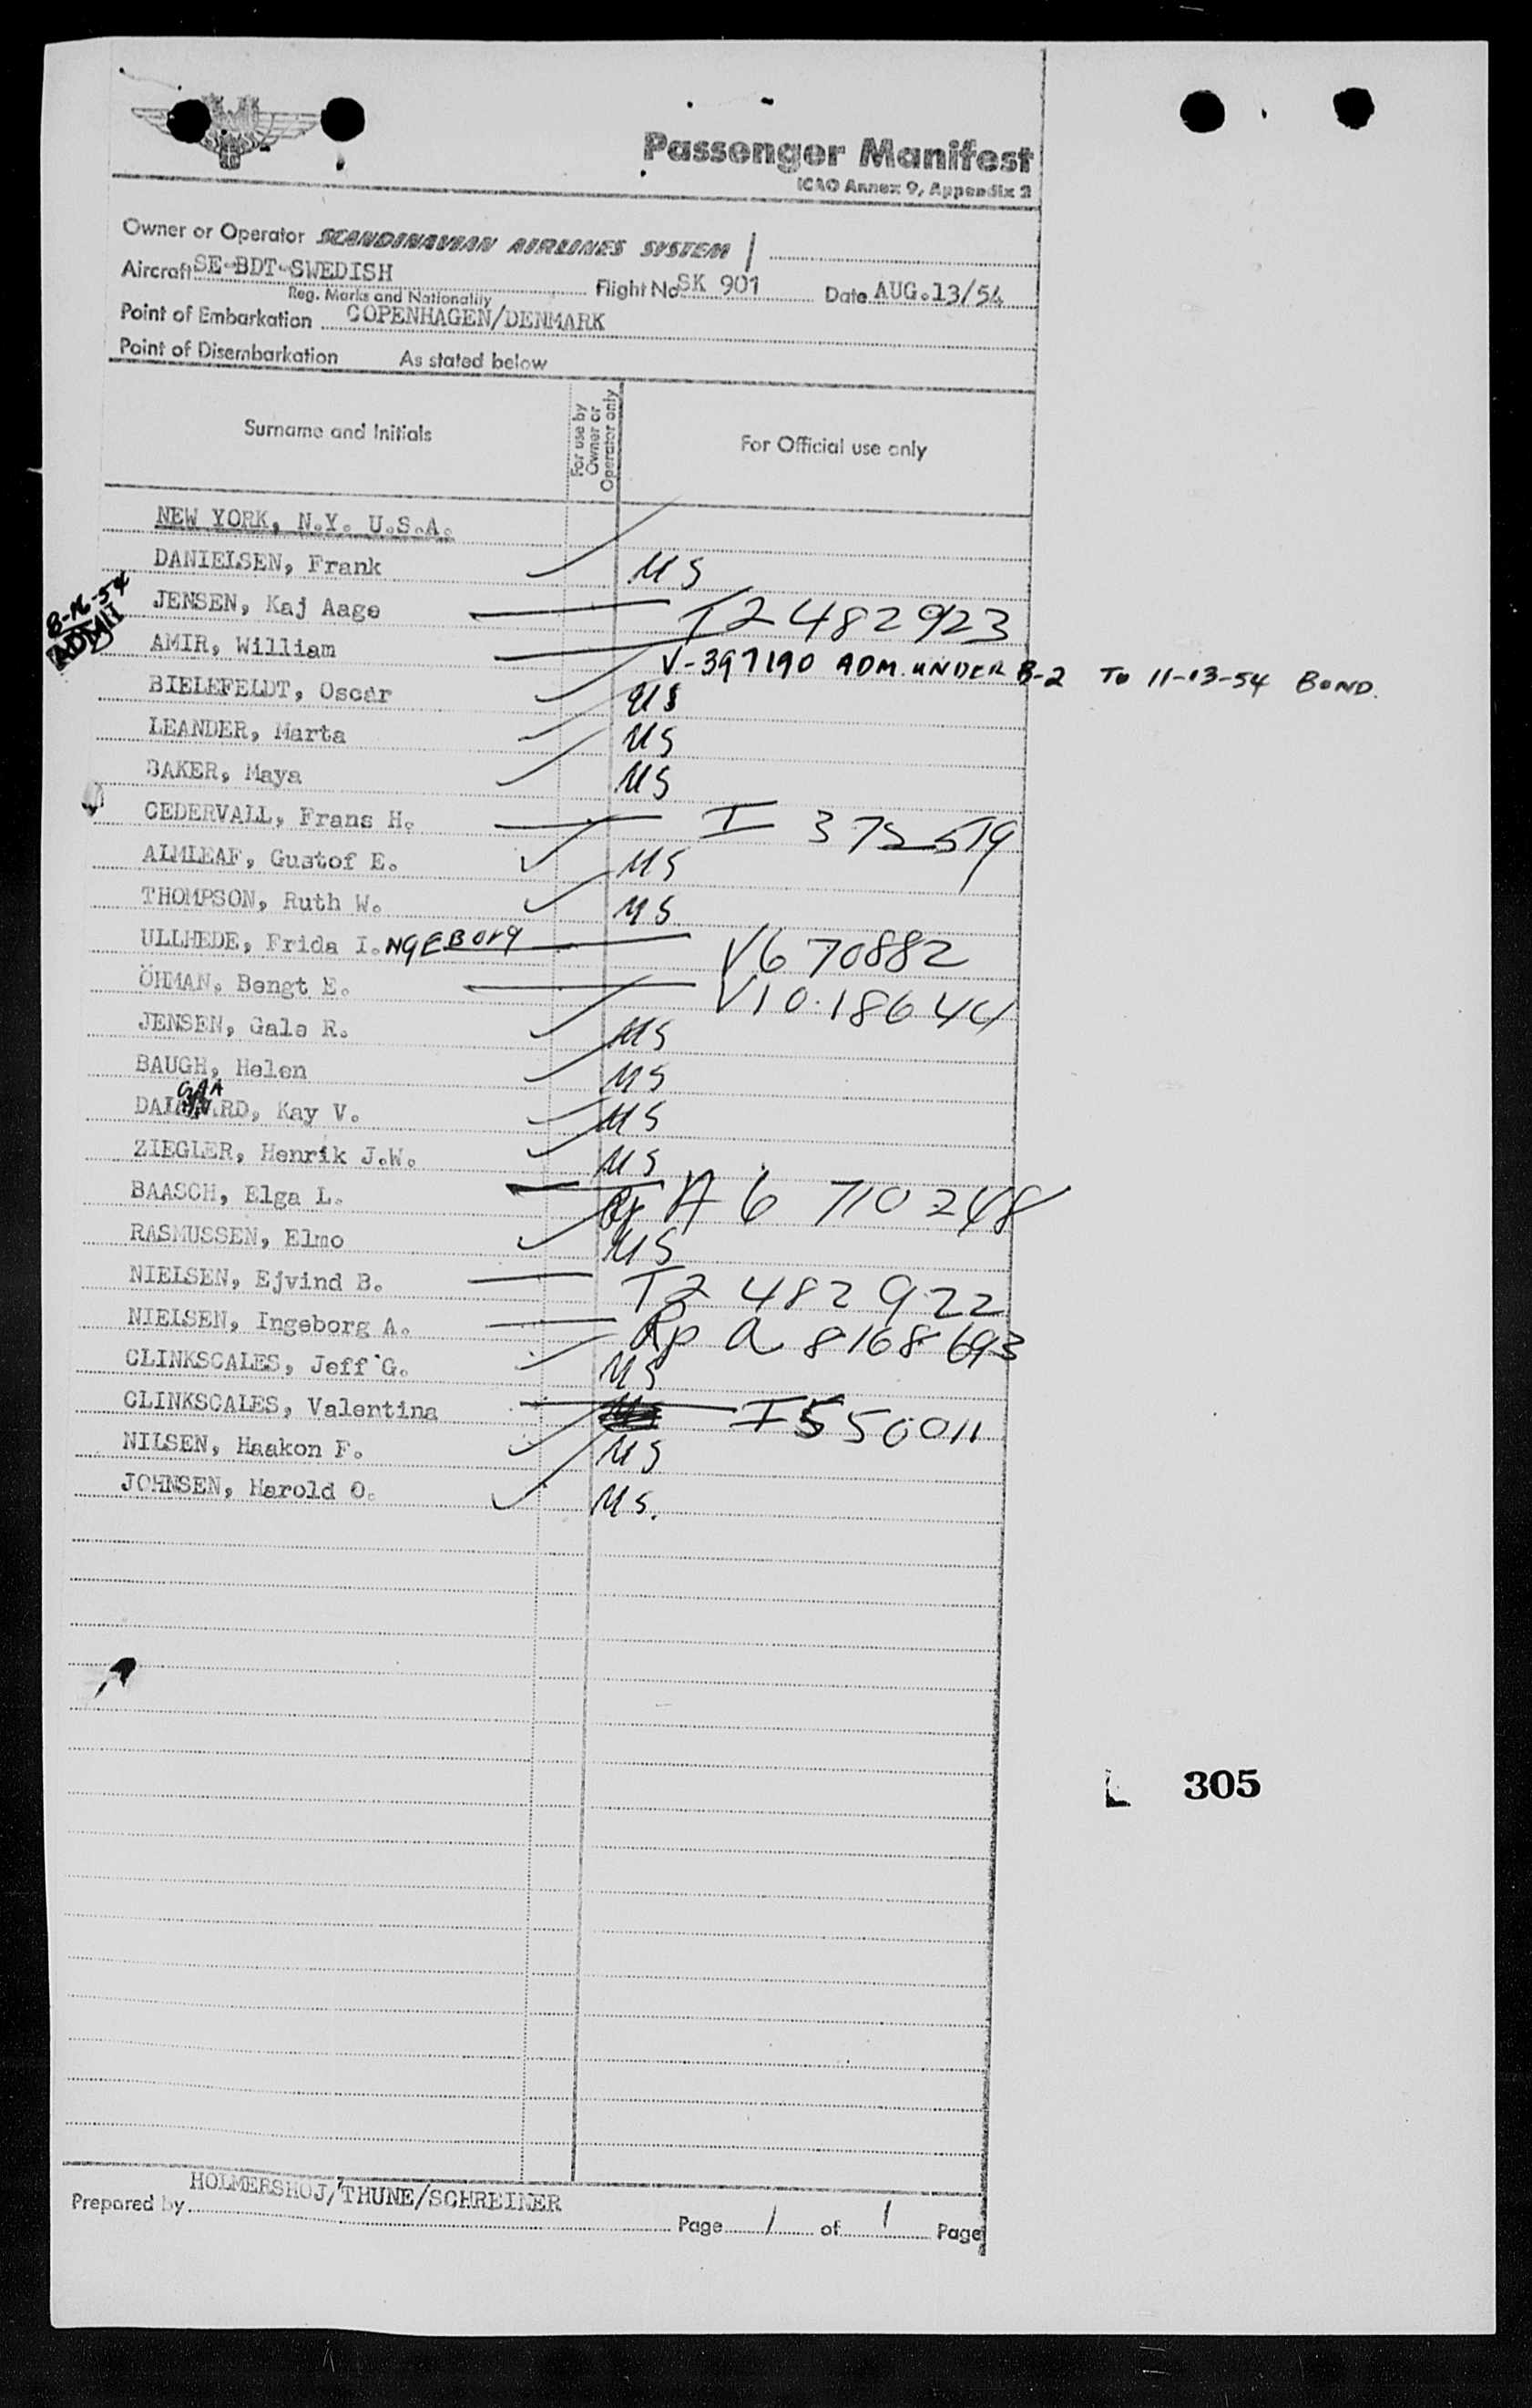 Passenger Manifest
ICAO Annex 9, Appendix 2
Owner or Operator SCANDINAVIAN AIRLINES SYSTEM
Aircraft SE-BDT-SWEDISH Flight No SK 901 Date AUG.13/54
Reg. Marks and Nationality
Point of Embarkation COPENHAGEN/DENMARK
Point of Disembarkation As stated below
Surname and Initials For use by Owner or Operator only For Official use only
NEW YORK, N.Y. U.S.A.
DANIELSEN, Frank US
JENSEN, Kaj Aage T2 482923
8-16-54
ADMIT
AMIR, William V-397190 ADM. UNDER B-2 TO 11-13-54 BOND.
BIELEFELDT, Oscar US
LEANDER, Marta US
BAKER, Maya US
CEDERVALL, Frans H. I 375519
ALMLEAF, Gustof E. US
THOMPSON, Ruth W. US
ULLHEDE, Frida I.NGEBorg V670882
ÖHMAN, Bengt E. V1018644
JENSEN, Gale R. US
BAUGH, Helen US
GAA
DAI RD, Kay V. US
ZIEGLER, Henrik J.W. US
BAASCH, Elga L. A 6 710 248
RASMUSSEN, Elmo US
NIELSEN, Ejvind B. T2 482922
NIELSEN, Ingeborg A. Rp a 8168693
CLINKSCALES, Jeff G. US
CLINKSCALES, Valentina I550011
NILSEN, Haakon F. US
JOHNSEN, Harold O. US.
305
Prepared by HOLMERSHOJ/THUNE/SCHREINER
Page 1 of 1 Page